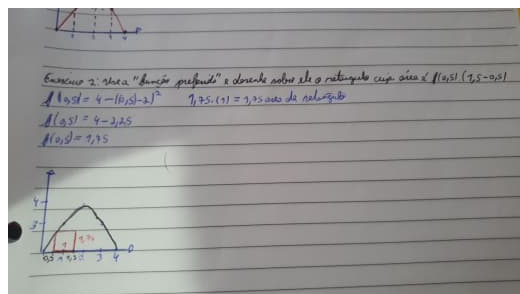 Exercício 2: Use a "função preferida" e desenhe sobre ele o retângulo cuja área é f(0,5) (1,5-0,5)
f(0,5) = 4-(0,5)-2)² 1,75.(1) = 1,75 area do retângulo
f(0,5) = 4-2,25
f(0,5) = 1,75
4
3
1 1,75
0,5 1 1,5 2 3 4